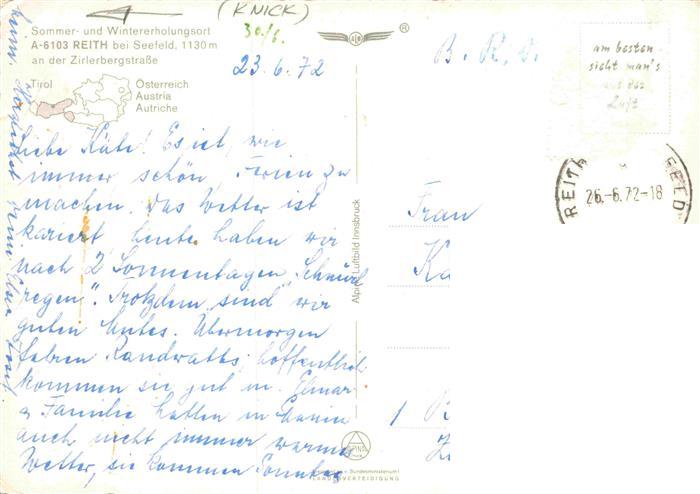 (KNICK)
30./6.
Sommer- und Wintererholungsort
A-6103 REITH bei Seefeld, 1130 m
an der Zirlerbergstraße
Tirol
Österreich
Austria
Autriche
B. R. D.
am besten
sieht man's
aus der
Luft
23.6.72
REITH SEEFELD
26.-6.72-18
Liebe Käte! Es ist, wie
immer schön, Ferien zu
machen. Das Wetter ist
kariert, heute haben wir
nach 2 Sonnentagen „Schnürl
regen“. Trotzdem sind wir
guten Mutes. Übermorgen
fahren Randwatts, hoffentlich
kommen sie gut an. Elmar
u. Familie hatten in
auch nicht immer warmes
Wetter, sie kommen Sonntag
Alpine Luftbild Innsbruck
Frau
Kä
ALPINE
Bundesministerium f.
LANDESVERTEIDIGUNG